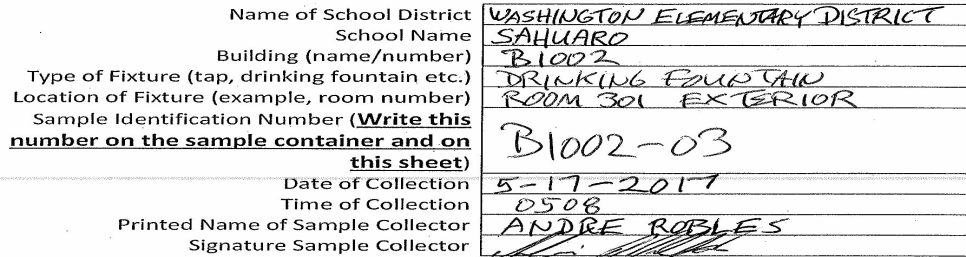 Name of School District WASHINGTON ELEMENTARY DISTRICT
School Name SAHUARO
Building (name/number) B1002
Type of Fixture (tap, drinking fountain etc.) DRINKING FOUNTAIN
Location of Fixture (example, room number) ROOM 301 EXTERIOR
Sample Identification Number (Write this
number on the sample container and on
this sheet) B1002-03
Date of Collection 5-17-2017
Time of Collection 0508
Printed Name of Sample Collector ANDRE ROBLES
Signature Sample Collector